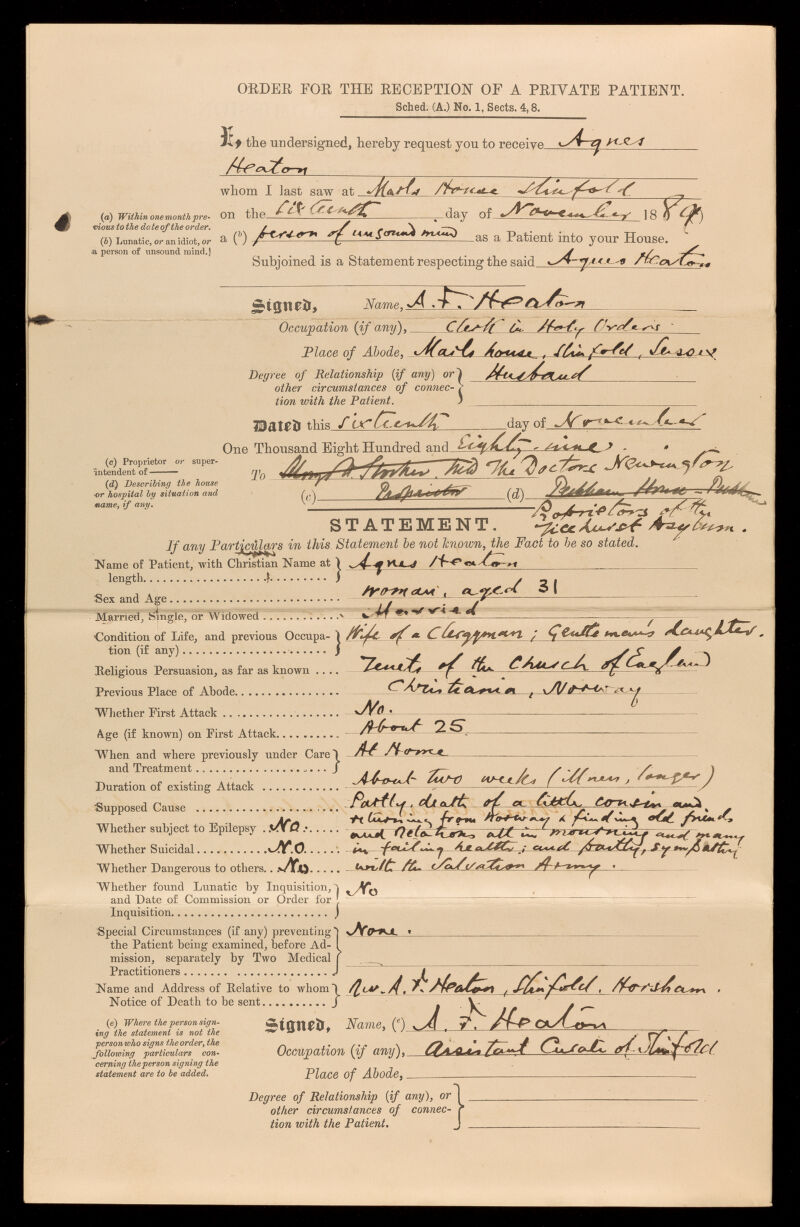 ORDER FOR THE RECEPTION OF A PRIVATE PATIENT.
Sched. (A.) No. 1, Sects. 4, 8.
I, the undersigned, hereby request you to receive Agnes
Heaton
whom I last saw at Marls House Slinfold
(a) Within one month previous to the date of the order.
on the Sixteenth day of November 1889 (a)
(b) Lunatic, or an idiot, or a person of unsound mind.
a (b) person of unsound mind as a Patient into your House.
Subjoined is a Statement respecting the said Agnes Heaton
Signed, Name, A. F. Heaton
Occupation (if any), Clerk in Holy Orders
Place of Abode, Marls house, Slinfold, Sussex
Degree of Relationship (if any) or Husband
other circumstances of connec-
tion with the Patient.
Dated this Sixteenth day of November
One Thousand Eight Hundred and Eighty-nine.
(c) Proprietor or super-
intendent of ——
(d) Describing the house
or hospital by situation and
name, if any.
To Stocker. M.D The Doctors Newington
(c) Proprietor (d) Peckham House Peckham
Proprietors of the
STATEMENT. Ticehurst Asylum.
If any Particulars in this Statement be not known, the Fact to be so stated.
Name of Patient, with Christian Name at Agnes Heaton
length
Sex and Age woman, aged 31
Married, Single, or Widowed Married
Condition of Life, and previous Occupa- Wife of a Clergyman; Gentleman's daughter.
tion (if any)
Religious Persuasion, as far as known Tenets of the Church of England
Previous Place of Abode Christiania, Norway
Whether First Attack No.
Age (if known) on First Attack About 25
When and where previously under Care At Home
and Treatment
Duration of existing Attack About two weeks (illness, longer)
Supposed Cause Partly, death of a little cousin and
returning from Norway & finding old friends
Whether subject to Epilepsy No. and relations all in mourning and many
Whether Suicidal No. in failing health; and partly, sympathy
Whether Dangerous to others No with the Salvation Army.
Whether found Lunatic by Inquisition, No
and Date of Commission or Order for
Inquisition
Special Circumstances (if any) preventing None.
the Patient being examined, before Ad-
mission, separately by Two Medical
Practitioners
Name and Address of Relative to whom Rev. A. F. Heaton, Slinfold, Horsham.
Notice of Death to be sent
(e) Where the person sign-
ing the statement is not the
person who signs the order, the
following particulars con-
cerning the person signing the
statement are to be added.
Signed, Name, (e) A. F. Heaton
Occupation (if any), Assistant Curate of Slinfold
Place of Abode,
Degree of Relationship (if any), or
other circumstances of connec-
tion with the Patient.